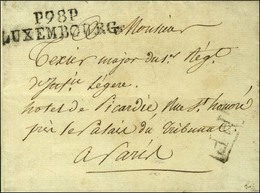 P98P
LUXEMBOURG
Monsieur
Texier major du 1er Régt
d'Infie Légere
hotel de Picardie Rue St honoré
près le Palais du Tribunat
a Paris